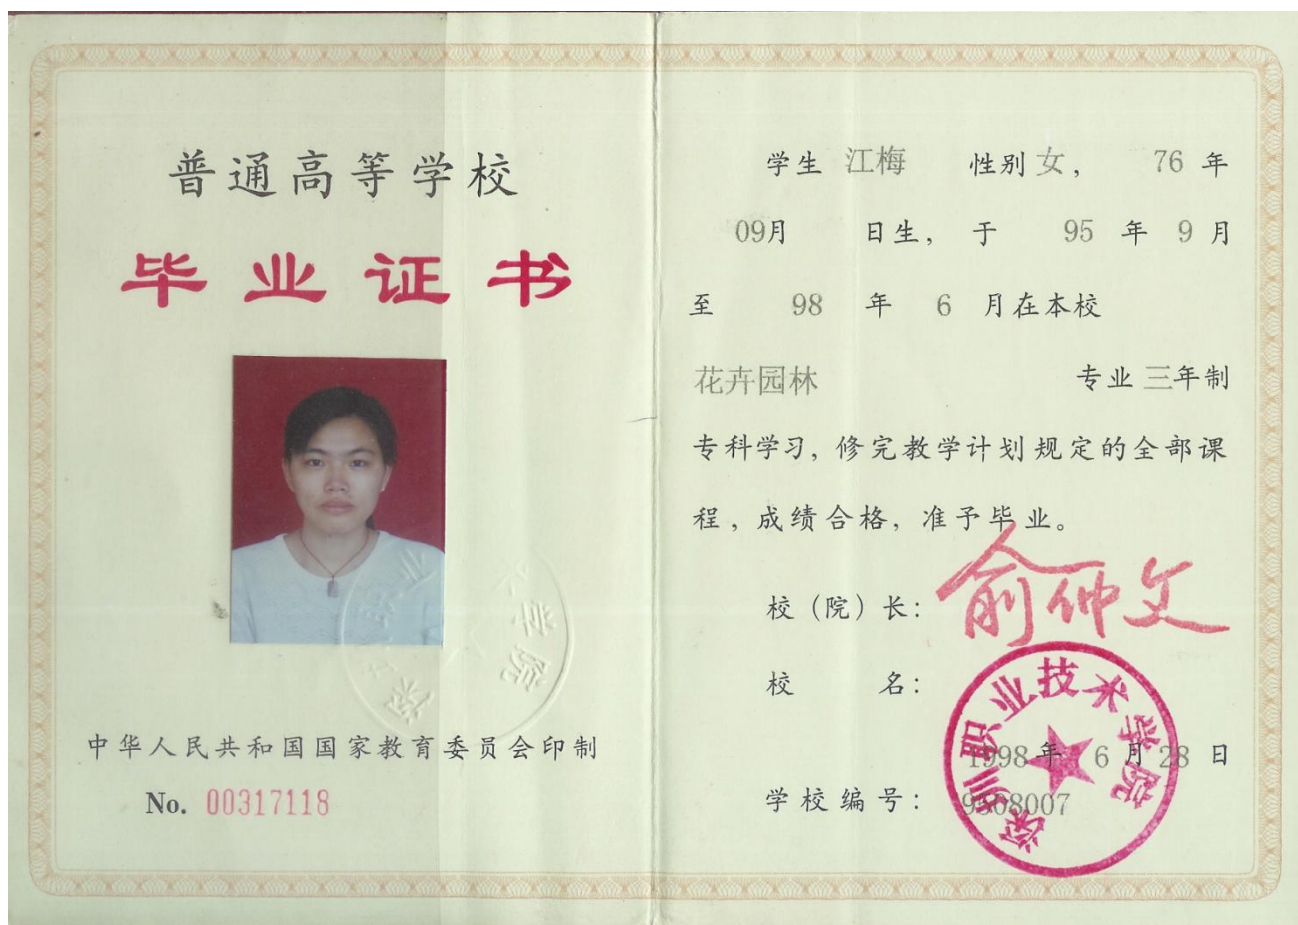 普通高等学校
毕业证书
中华人民共和国国家教育委员会印制
No. 00317118
学生 江梅 性别 女, 76 年
09月 日生, 于 95 年 9 月
至 98 年 6 月在本校
花卉园林 专业 三年制
专科学习, 修完教学计划规定的全部课
程, 成绩合格, 准予毕业。
校（院）长: 俞仲文
校 名:
深圳职业技术学院
1998 年 6 月 28 日
学校编号: 9508007